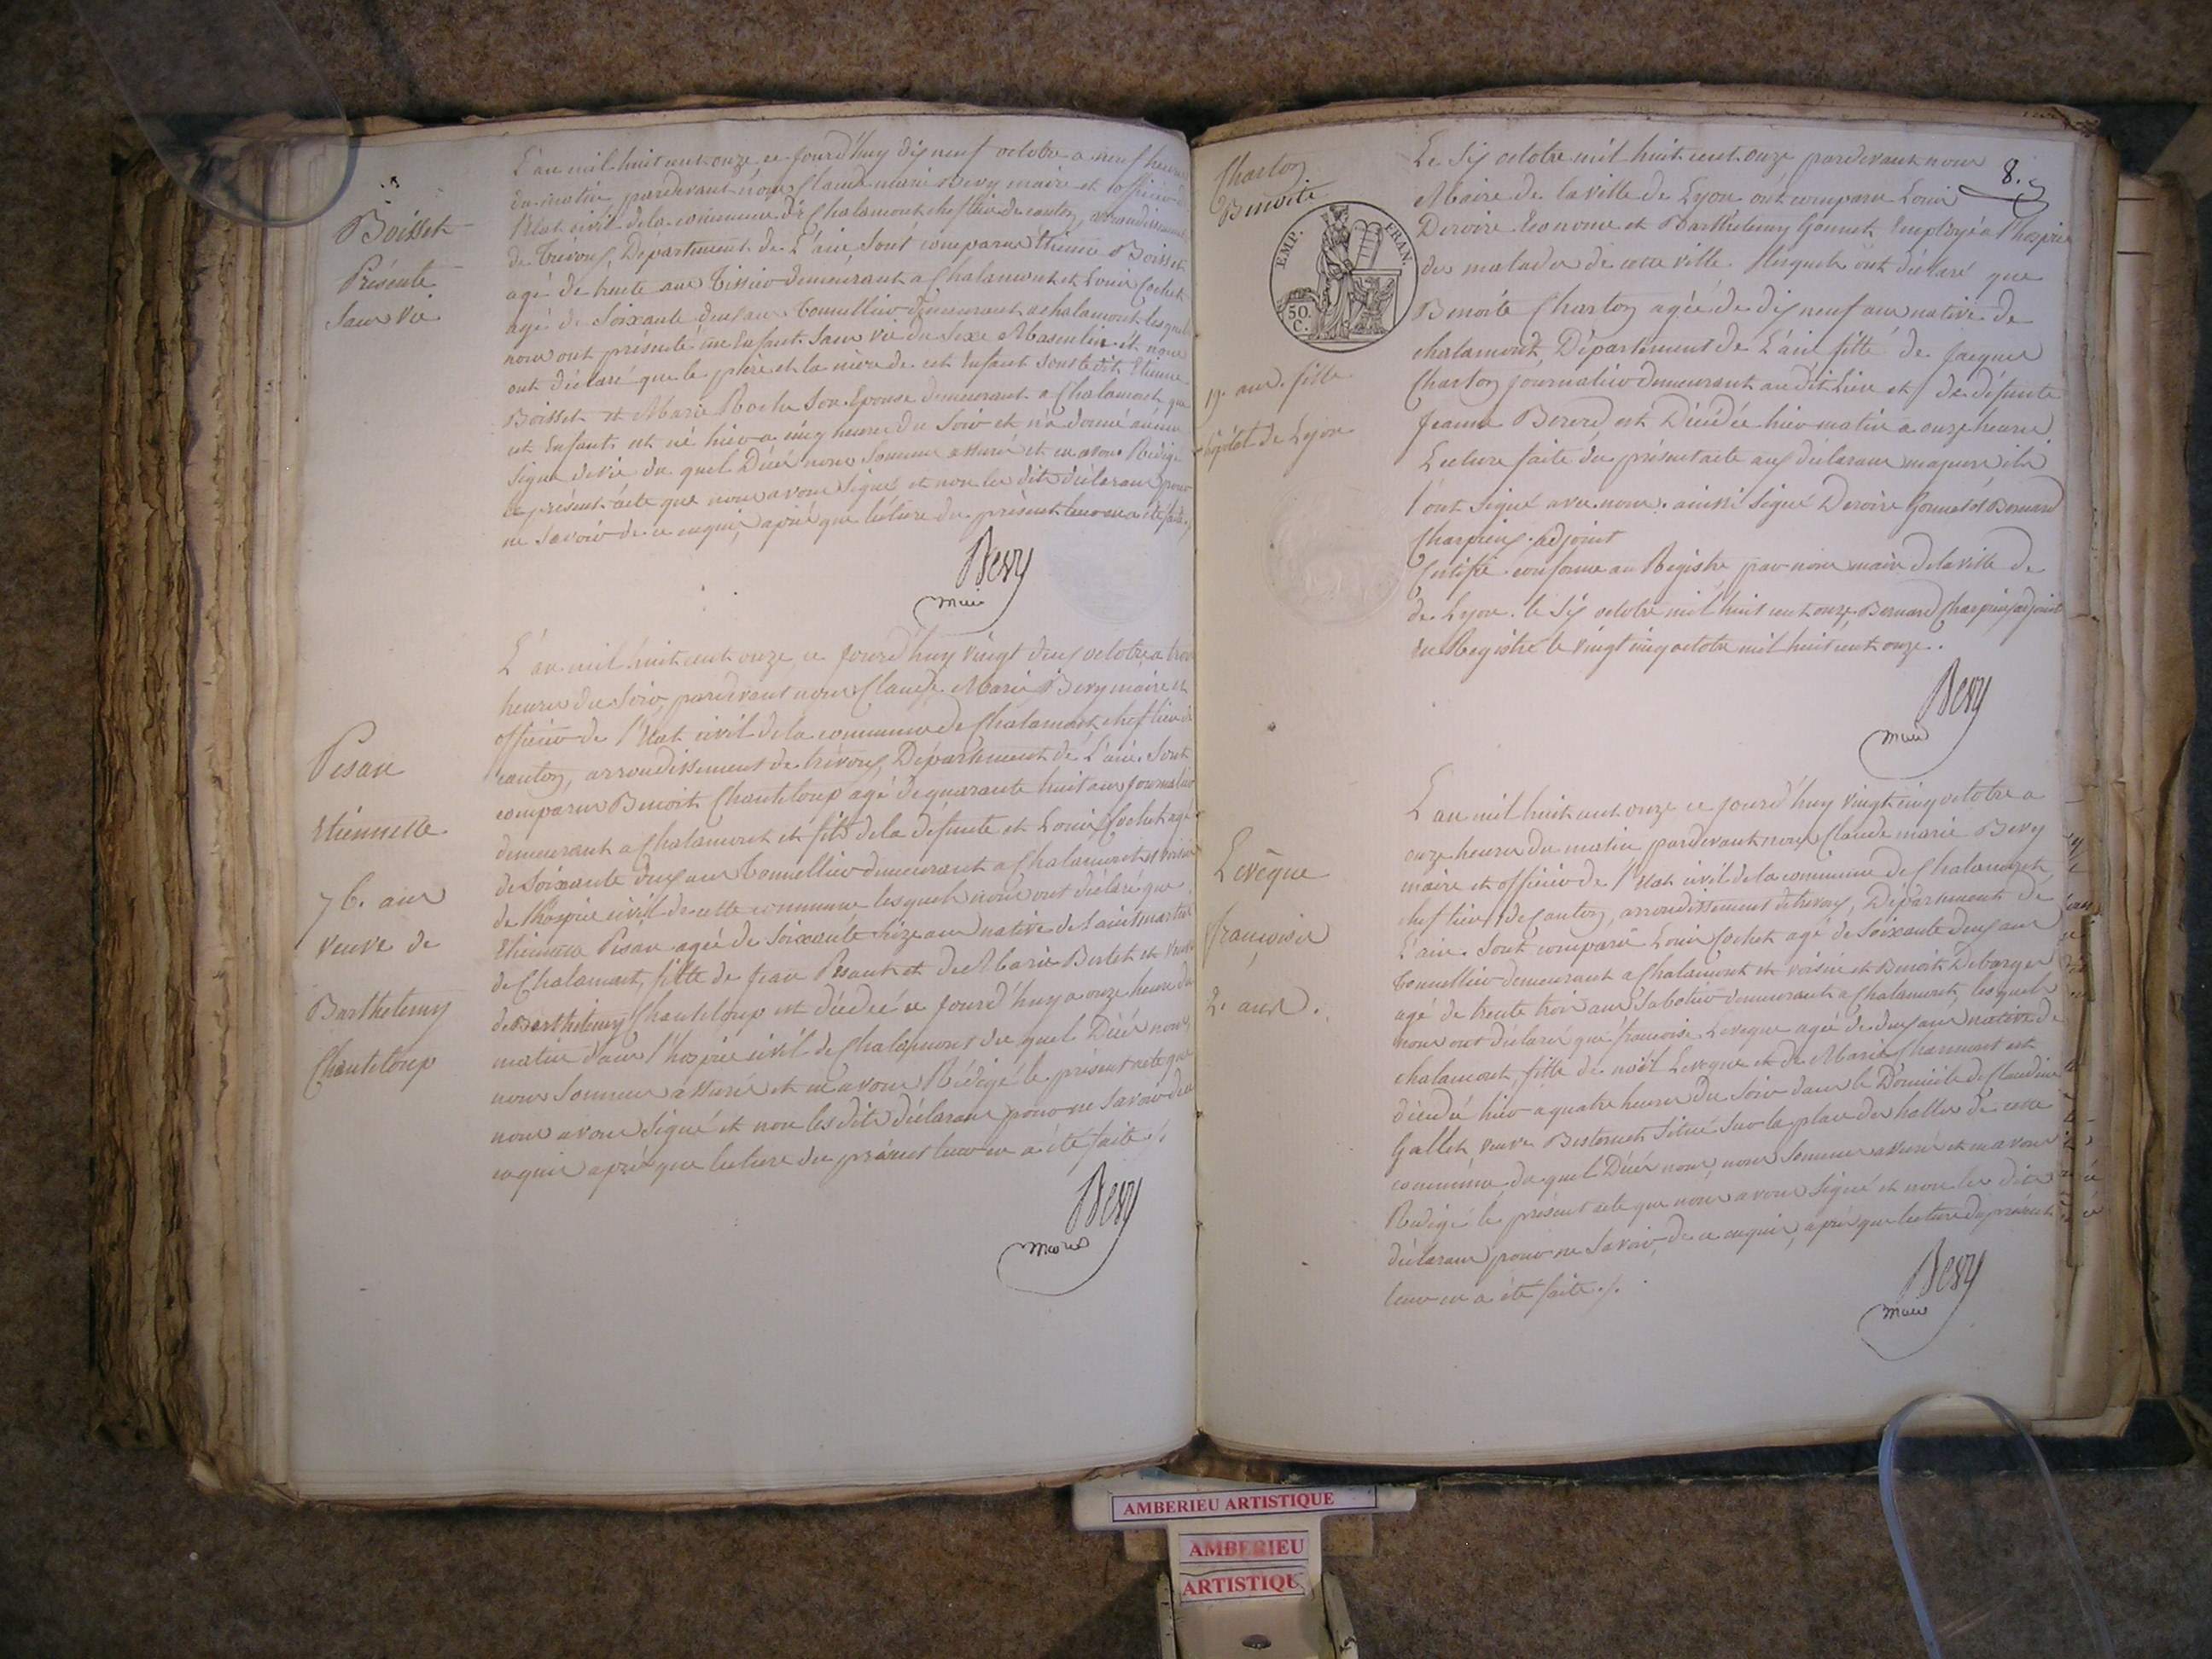 Boisset
Présenté
Sans vie
L'an mil huit cent onze ce jourd'huy dix neuf octobre a neuf heures
du matin pardevant nous Claude marie Bevy maire et officier de
l'Etat civil de la commune de Chalamont chef lieu de canton, arrondissement
de Trévoux, Département de L'ain, Sont comparus Etienne Boisset
agé de trente ans Tissier demeurant a Chalamont et Louis Cochet
agé de Soixante deux ans Tonnellier demeurant a chalamont lesquels
nous ont présenté un Enfant Sans vie du Sexe Masculin et nous
ont déclaré que le père et la mère de cet Enfant Sont ledit Etienne
Boisset et Marie Roche Son Epouse demeurant a Chalamont que
cet Enfant est né hier a cinq heures du Soir et n'a donné aucun
Signe de vie du quel Décès nous Sommes assuré et en avons Rédigé
le présent acte que nous avons Signé et non les dits déclarans pour
ne Savoir de ce enquis, après que lecture du présent leur en a été faite ./.
Bevy
maire
Pesan
Etiennette
76. ans
veuve de
Barthelemy
Chanteloup
L'an mil huit cent onze, ce jourd'huy vingt deux octobre a trois
heures du Soir, pardevant nous Claude Marie Bevy maire et
officier de l'Etat civil de la commune de Chalamont, chef lieu de
canton, arrondissement de trévoux, Département de L'ain. Sont
comparus Benoit Chanteloup agé de quarante huit ans journalier
demeurant a Chalamont et fils de la défunte et Louis Cochet agé
de Soixante deux ans Tonnellier demeurant a Chalamont et voisin
de l'hospice civil de cette commune lesquels nous ont déclaré que
Etiennette Pesan agée de Soixante Seize ans native de Saint martin
de Chalamont, fille de Jean Pesant et de Marie Berlet et veuve
de Barthelemy Chanteloup est décédée ce jourd'huy a onze heure du
matin dans l'hospice civil de Chalamont du quel Décès nous
nous Sommes assuré et en avons Rédigé le présent acte que
nous avons Signé et non les dits déclarans pour ne Savoir de ce
enquis après que lecture du présent leur en a été faite ./.
Bevy
maire
8.
Charton
Benoite
EMP. FRAN.
50. C.
19. ans. fille
hôpital de Lyon
Le Six octobre mil huit cent onze pardevant nous
Maire de la ville de Lyon ont comparu Louis
Deroire Econome et Barthélemy Gonnet Employé a l'hospice
des malades de cette ville. Lesquels ont déclaré que
Benoite Charton agée de dix neuf ans native de
chalamont, Département de L'ain fille de Jacques
Charton journalier demeurant au dit Lieu et de défunte
Jeanne Berord, est Décédée hier matin a onze heures
Lecture faite du présent acte aux déclarans majeurs ils
l'ont Signé avec nous. ainsi Signé Deroire Gonnet et Bernard
Charpieux. adjoint
Certifié conforme au Registre par nous maire de la ville de
de Lyon. le Six octobre mil huit cent onze. Bernard Charpieux adjoint
du Registre le vingt cinq octobre mil huit cent onze.
Bevy
maire
Levêque
françoise
2. ans.
L'an mil huit cent onze ce jourd'huy vingt cinq octobre a
onze heures du matin pardevant nous Claude marie Bevy
maire et officier de l'Etat civil de la commune de Chalamont,
chef lieu de canton, arrondissement de trevoux, Département de
L'ain. Sont comparu Louis Cochet agé de Soixante deux ans
Tonnellier demeurant a Chalamont et voisin et Benoit Debarges
agé de trente trois ans Sabotier demeurant a Chalamont, lesquels
nous ont déclaré que françoise Leveque agée de deux ans native de
chalamont fille de noël Leveque et de Marie Charmont est
décédé hier a quatre heures du Soir dans le Domicile de Claudine
Gallet, veuve Besternet Situé Sur la place des halles de cette
commune du quel Décès nous, nous Sommes assuré et en avons
Rédigé le présent acte que nous avons Signé et non les dits
déclarans pour ne Savoir, de ce enquis, après que lecture du présent
leur en a été faite ./.
Bevy
maire
AMBERIEU ARTISTIQUE
AMBERIEU
ARTISTIQUE